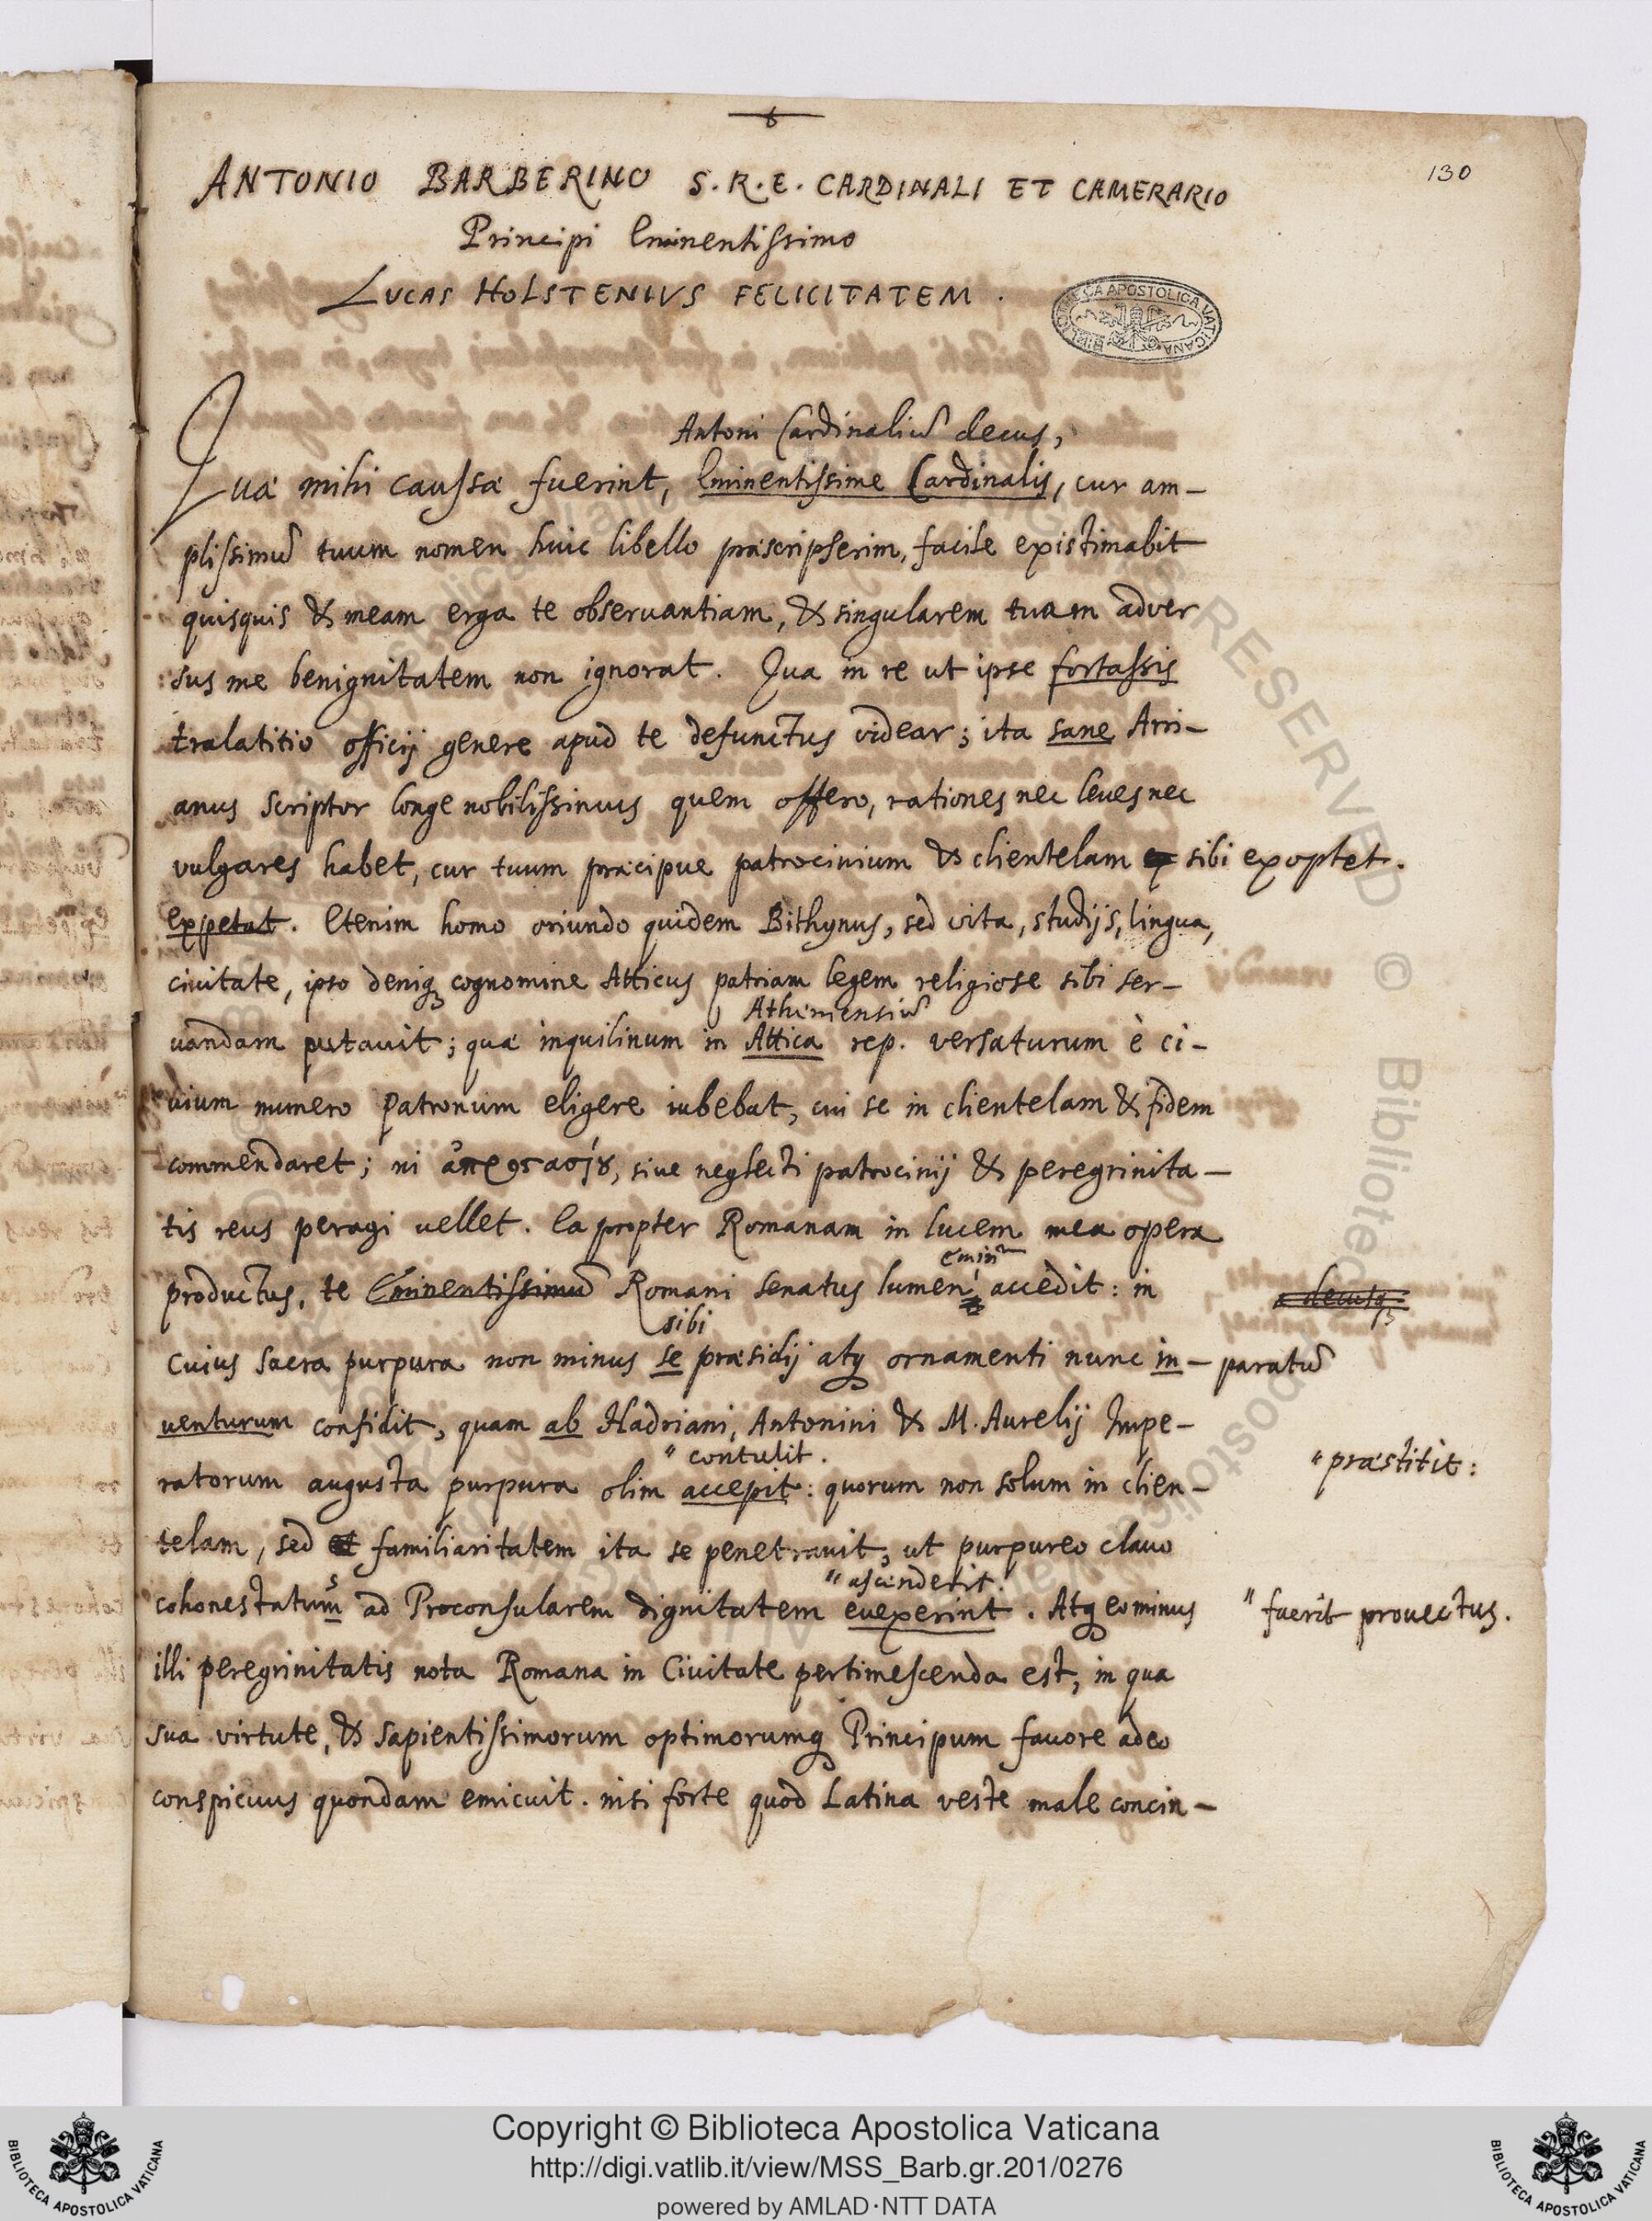 130
ANTONIO BARBERINO S.R.E. CARDINALI ET CAMERARIO
Principi Eminentissimo
LUCAS HOLSTENIVS FELICITATEM.
BIBLIOTECA APOSTOLICA VATICANA
Antoni Cardinaliũ decus,
Quæ mihi caussæ fuerint, Eminentissime Cardinalis, cur am-
plissimũ tuum nomen huic libello præscripserim, facile existimabit
quisquis & meam erga te obseruantiam, & singularem tuam adver
sus me benignitatem non ignorat. Qua in re ut ipse fortassis
tralatitio officij genere apud te defunctus videar; ita sane Arri-
anus scriptor longe nobilissimus quem offero, rationes nec leues nec
vulgares habet, cur tuum præcipue patrocinium & clientelam ex sibi exoptet.
expetat. Etenim homo oriundo quidem Bithynus, sed vita, studijs, lingua,
ciuitate, ipso deniq; cognomine Atticus patriam legem religiose sibi ser-
Atheniensiũ
uandam putauit; quæ inquilinum in Attica rep. versaturum è ci-
uium numero Patronum eligere iubebat, cui se in clientelam & fidem
commendaret; ni ἀπροστασίȣ, siue neglecti patrocinij & peregrinita-
tis reus peragi vellet. Ea propter Romanam in lucem mea opera
emin
productus, te Eminentissimũ Romani Senatus lumen accedit: in
decusq;
sibi
cuius sacra purpura non minus se præsidij atq; ornamenti nunc in- paratũ
uenturum confidit, quam ab Hadriani, Antonini & M. Aurelij Impe-
" contulit.
" præstitit:
ratorum augusta purpura olim accepit: quorum non solum in clien-
telam, sed et familiaritatem ita se penetrauit, ut purpureo clauo
s
" ascenderit.
cohonestatum ad Proconsularem dignitatem euexerint. Atq; eo minus " fuerit prouectus.
illi peregrinitatis nota Romana in Ciuitate pertimescenda est, in qua
sua virtute, & sapientissimorum optimorumq; Principum fauore adeo
conspicuus quondam emicuit. nisi forte quod Latina veste male concin-
Copyright © Biblioteca Apostolica Vaticana
http://digi.vatlib.it/view/MSS_Barb.gr.201/0276
powered by AMLAD·NTT DATA
BIBLIOTECA APOSTOLICA VATICANA
BIBLIOTECA APOSTOLICA VATICANA